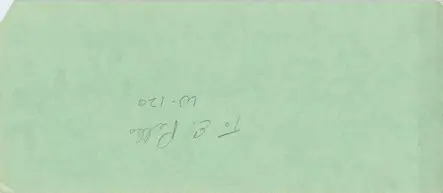 To E. Pello
W-120